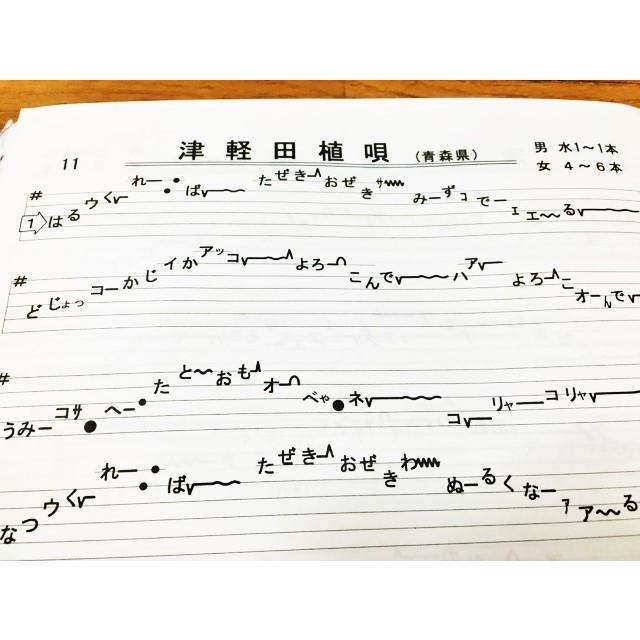 11 津軽田植唄 (青森県) 男 水1～1本
女 4～6本
1 はるウくれーばたぜきおぜきサみーずコでーェエ～～る
どじょっコーかじイかアッコよろーこんでハアよろーこオーんで
うみーコサへーたと～～おもオーべゃネコーリャーコリャ
なつウくれーばたぜきおぜきわぬーるくなーァア～～る